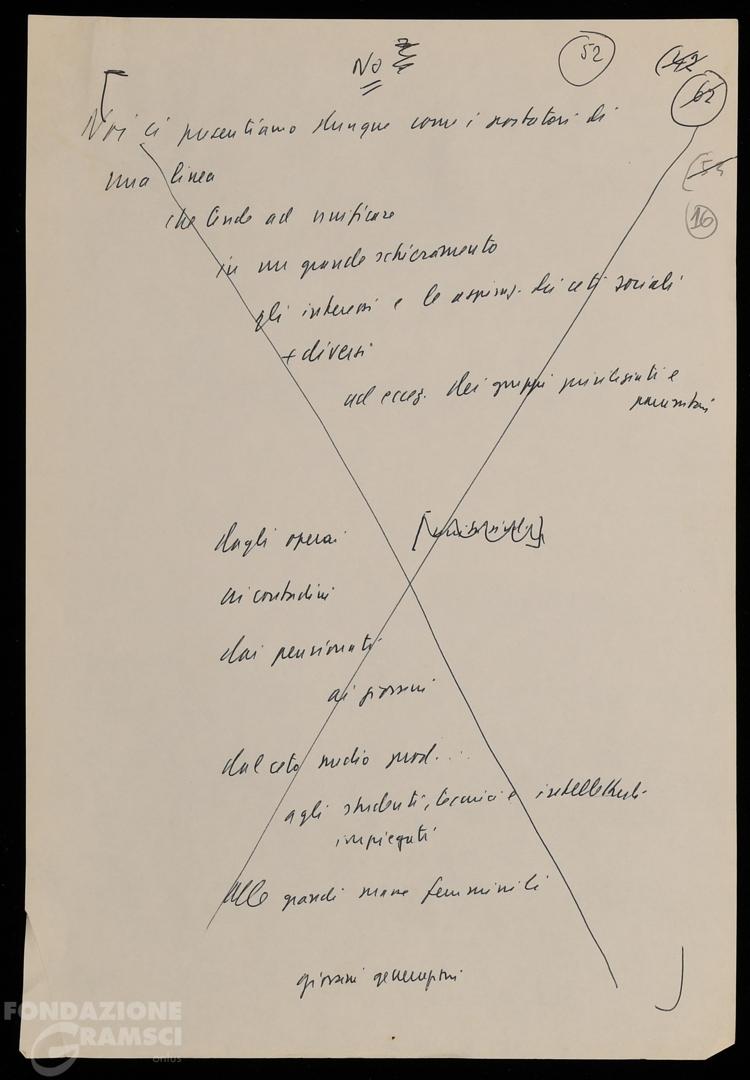 No
52
62
16
Noi ci presentiamo dunque come i portatori di
una linea
che tende ad unificare
in un grande schieramento
gli interessi e le aspiraz. dei ceti sociali
+ diversi
ad eccez. dei gruppi privilegiati e
parassitari
dagli operai
ai contadini
dai pensionati
ai giovani
dal ceto medio prod...
agli studenti, tecnici e intellettuali
impiegati
alle grandi masse femminili
giovani generazioni
FONDAZIONE
GRAMSCI
onlus